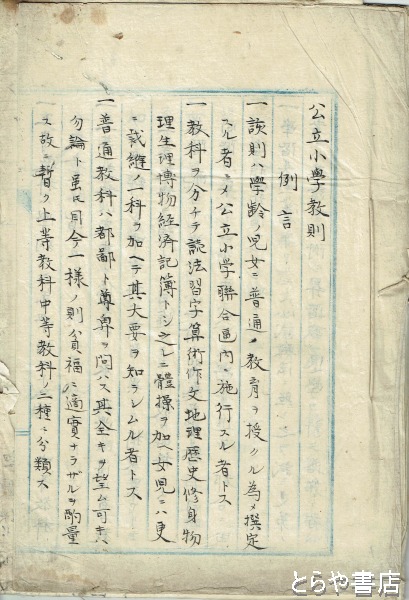 公立小學教則
例言
一該則ハ學齡ノ兒女ニ普通ノ教育ヲ授クル為メ撰定
スル者ニ〆公立小學聯合區内ニ施行スル者トス
一教科ヲ分チテ讀法習字算術作文地理歴史修身物
理生理博物経済記簿トシ之レニ體操ヲ加ヘ女児ニハ更
ニ裁縫ノ一科ヲ加ヘテ其大要ヲ知ラシムル者トス
一普通教科ハ都鄙ト尊卑ヲ問ハス其全キヲ望ム可キハ
勿論ト虽𪜈目今一様ノ則貧福ニ適實ナラザルヲ酌量
ス故ニ暫ク上等教科中等教科ノ二種ニ分類ス
とらや書店